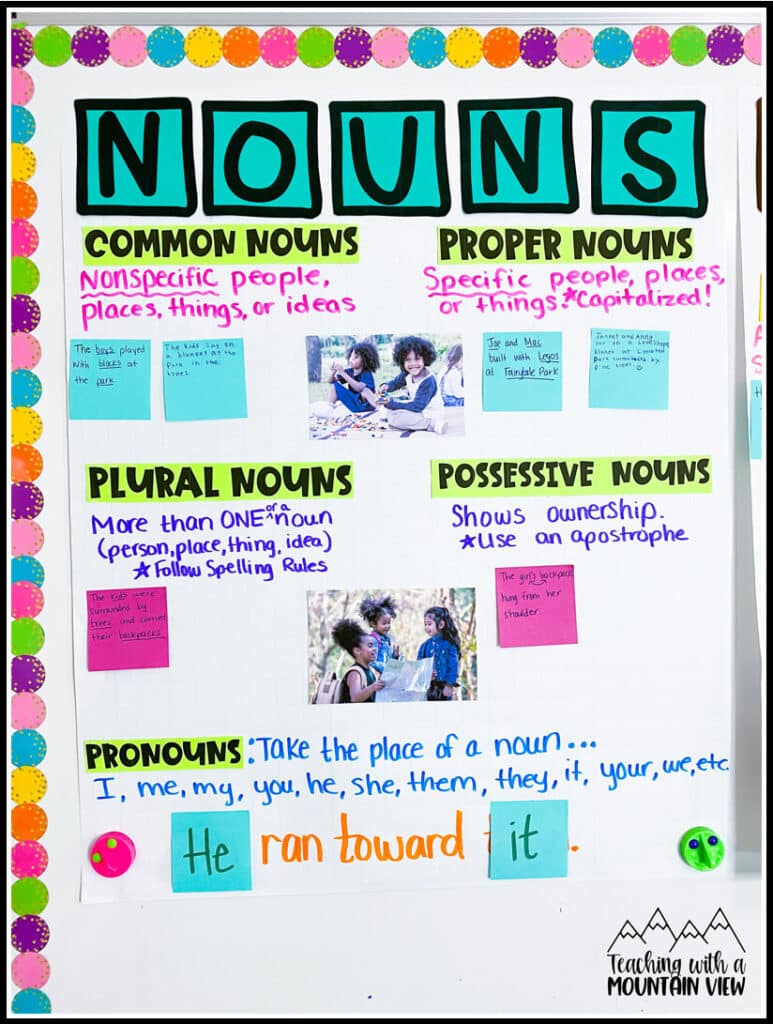 NOUNS
COMMON NOUNS
Nonspecific people,
places, things, or ideas
PROPER NOUNS
Specific people, places,
or things. *Capitalized!
The boys played
with blocks at
the park
The kids lay on
a blanket at the
park in the
trees
Joe and Mac
built with Legos
at Fairydale Park
Janet and
on a
blanket at
Park surrounded by
pine trees.
PLURAL NOUNS
More than ONE of a noun
(person, place, thing, idea)
*Follow Spelling Rules
POSSESSIVE NOUNS
Shows ownership.
*Use an apostrophe
The kids were
surrounded by
trees and carried
their backpacks.
The girl's backpack
hung from her
shoulder.
PRONOUNS: Take the place of a noun...
I, me, my, you, he, she, them, they, it, your, we, etc.
He ran toward it.
Teaching with a
MOUNTAIN VIEW